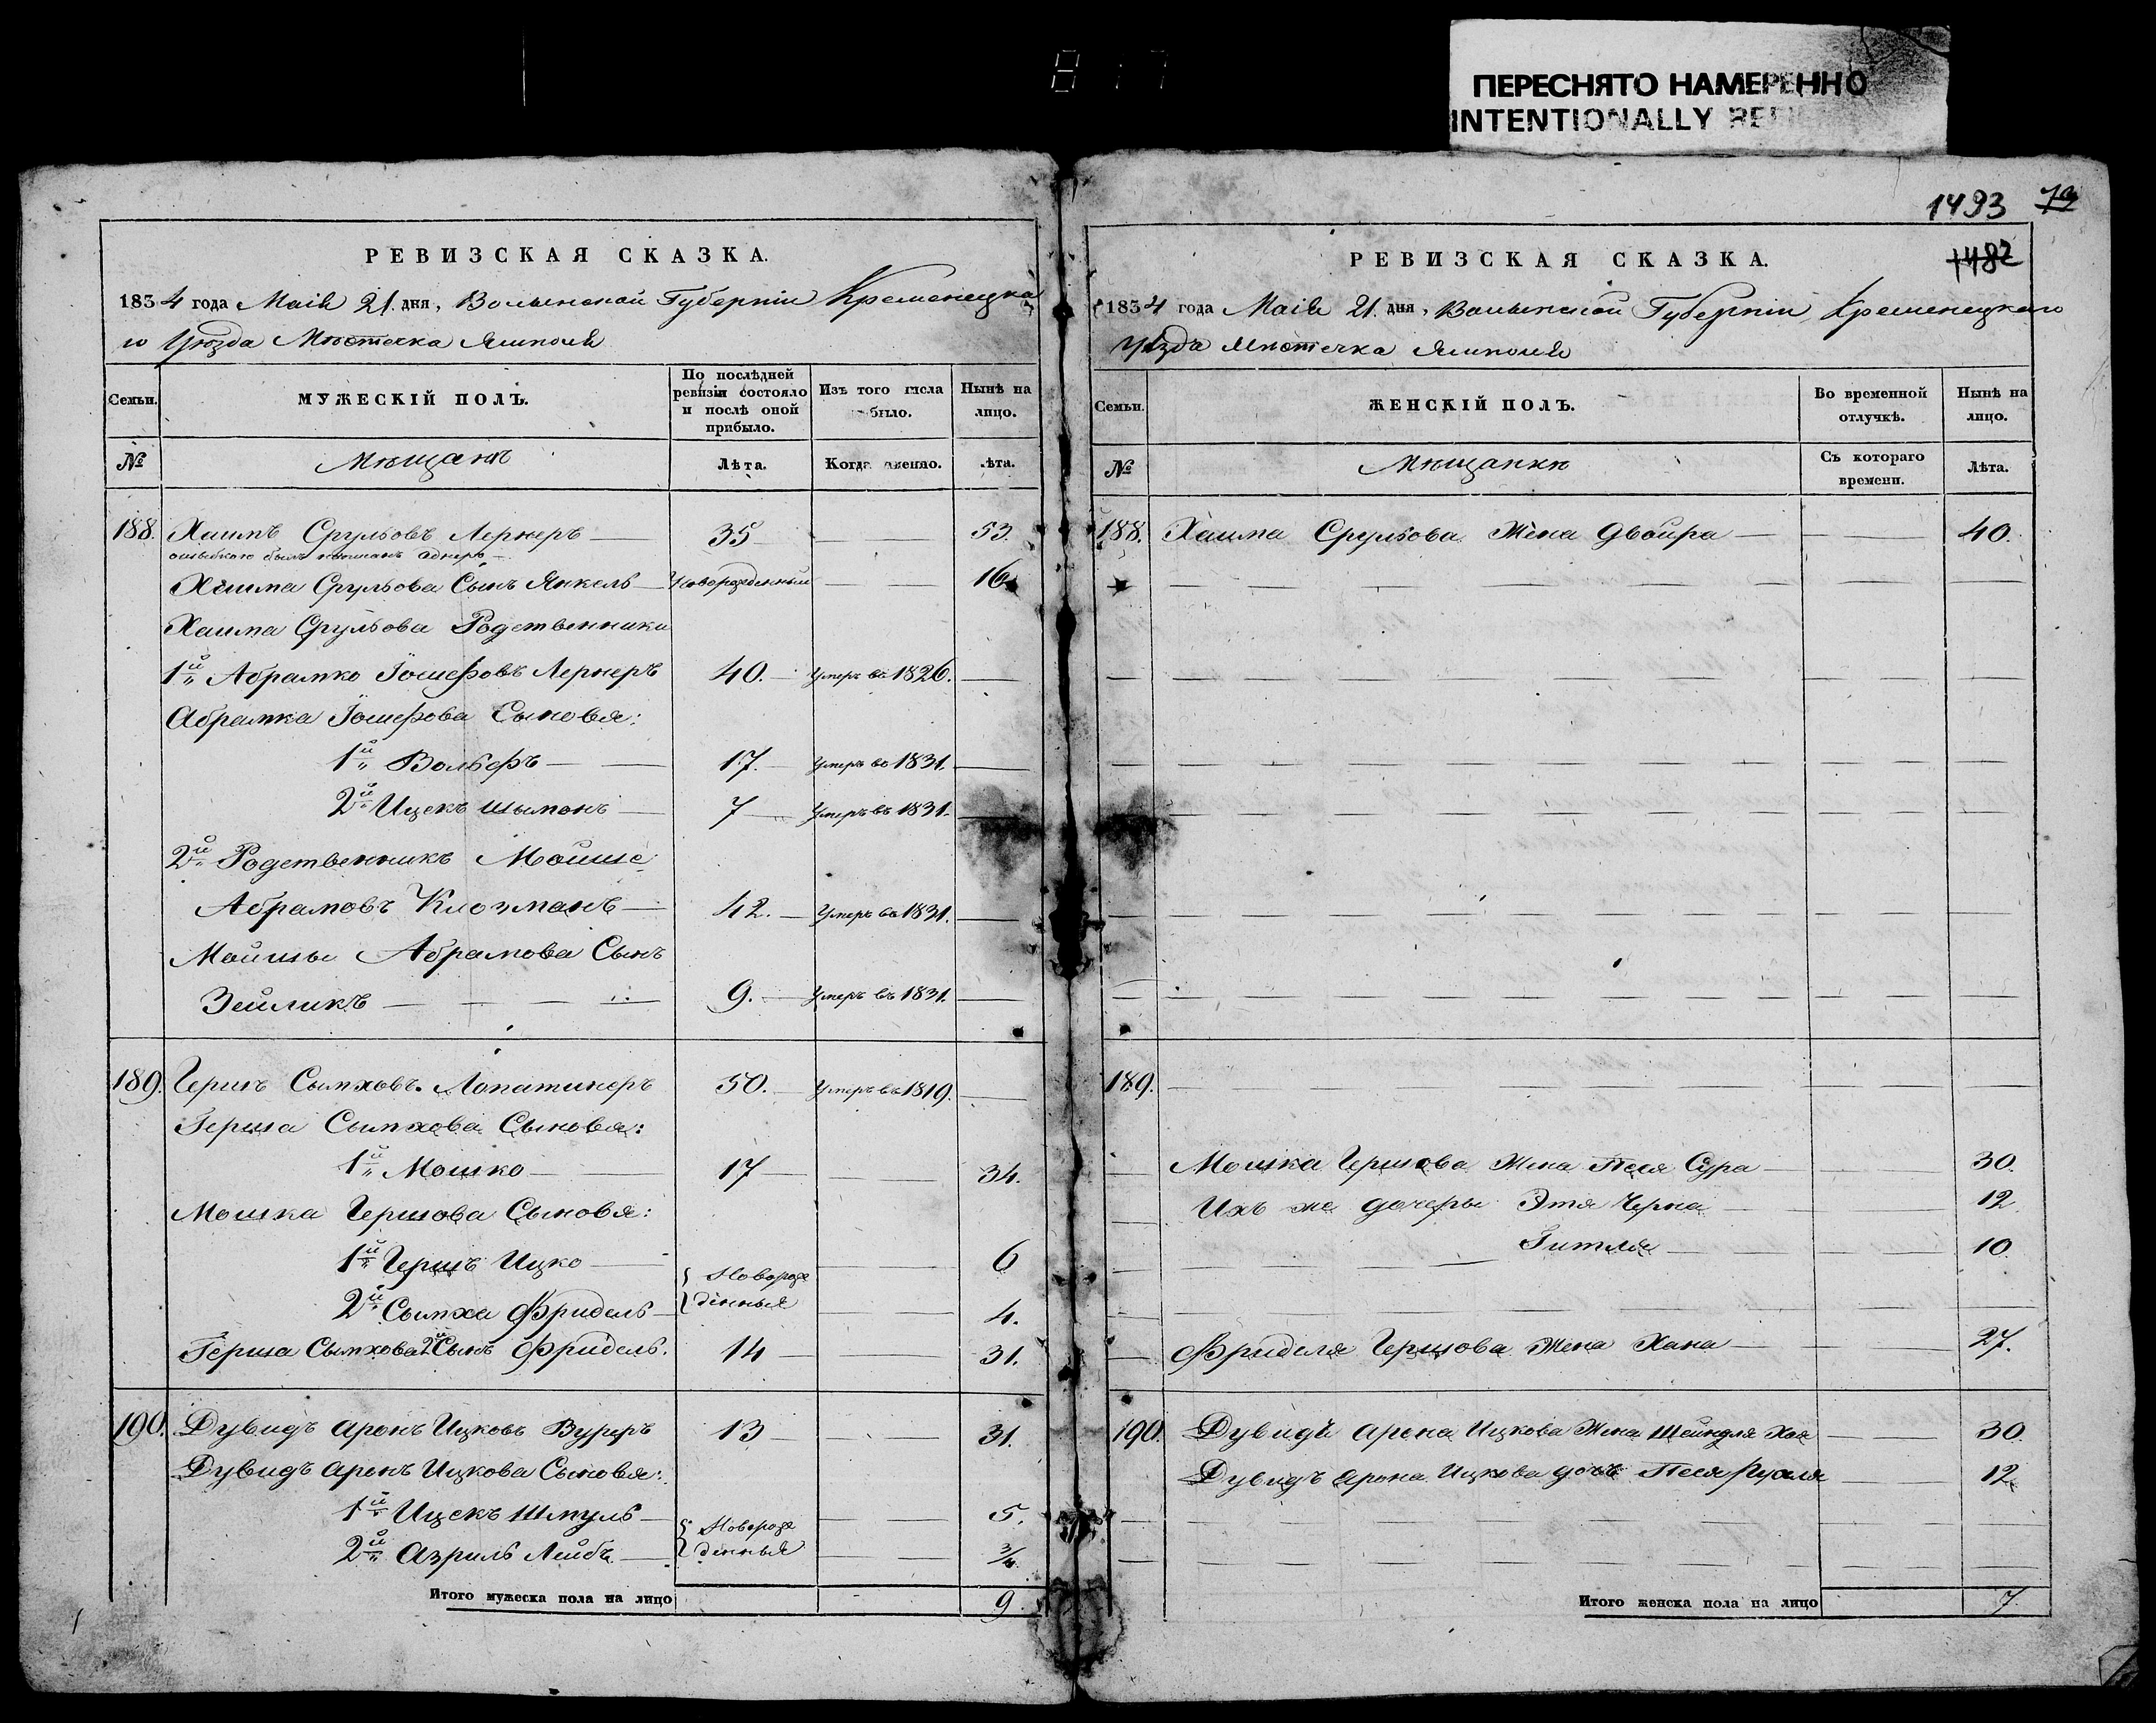 ПЕРЕСНЯТО НАМЕРЕННО
INTENTIONALLY
1493
1482
РЕВИЗСКАЯ СКАЗКА.
1834 года Маія 21. дня, Волынской Губерніи Кременецка
го Уѣзда Мѣстечка Ямполя
Семьи.
МУЖЕСКІЙ ПОЛЪ.
По послѣдней ревизіи состояло и послѣ оной прибыло.
Изъ того числа выбыло.
Нынѣ на лицо.
№
Мѣщанъ
Лѣта.
Когда именно.
Лѣта.
188. Хаимъ Срульовъ Лернеръ 35 53.
ошыбкою былъ написанъ
Хаима Срульова Сынъ Янкель Новорожденный 16.
Хаима Срульова Родственники
1й Абрамко Іошефовъ Лернеръ 40. Умеръ въ 1826.
Абрамка Іошефова Сыновья:
1й Вольфъ 17. Умеръ въ 1831.
2й Ицекъ Шымонъ 7 Умеръ въ 1831.
2й Родственникъ Мойше
Абрамовъ Клозманъ 42. Умеръ въ 1831.
Мойшы Абрамова Сынъ
Зейликъ 9. Умеръ въ 1831.
189. Гершъ Сымховъ Лопатинеръ 50. Умеръ въ 1819.
Герша Сымхова Сыновья:
1й Мошко 17 34.
Мошка Гершова Сыновья:
1й Гершъ Ицко 6
2й Сымха Фридель 4.
Новорож
денныя
Герша Сымхова 2й Сынъ Фридель. 14 31.
190. Дувидъ Аронъ Ицковъ Вуреръ 13 31.
Дувидъ Аронъ Ицкова Сыновья:
1й Ицекъ Шмуль 5.
2й Азриль Лейбъ 3/4.
Новорож
денныя
Итого мужеска пола на лицо 9.
РЕВИЗСКАЯ СКАЗКА.
1834 года Маія 21. дня, Волынской Губерніи, Кременецкаго
Уѣзда Мѣстечка Ямполя
Семьи.
ЖЕНСКІЙ ПОЛЪ.
Во временной отлучкѣ.
Нынѣ на лицо.
№
Мѣщанки
Съ котораго времени.
Лѣта.
188. Хаима Срульова Жена Двойра 40.
189.
Мошка Гершова Жена Песя Сура 30.
Ихъ же дочеры Этя Черна 12.
Гитля 10
Фриделя Гершова Жена Хана 27.
190. Дувидъ Арона Ицкова Жена Шейндля Хая 30.
Дувидъ Арона Ицкова дочь Песя Рухля 12.
Итого женска пола на лицо 7.